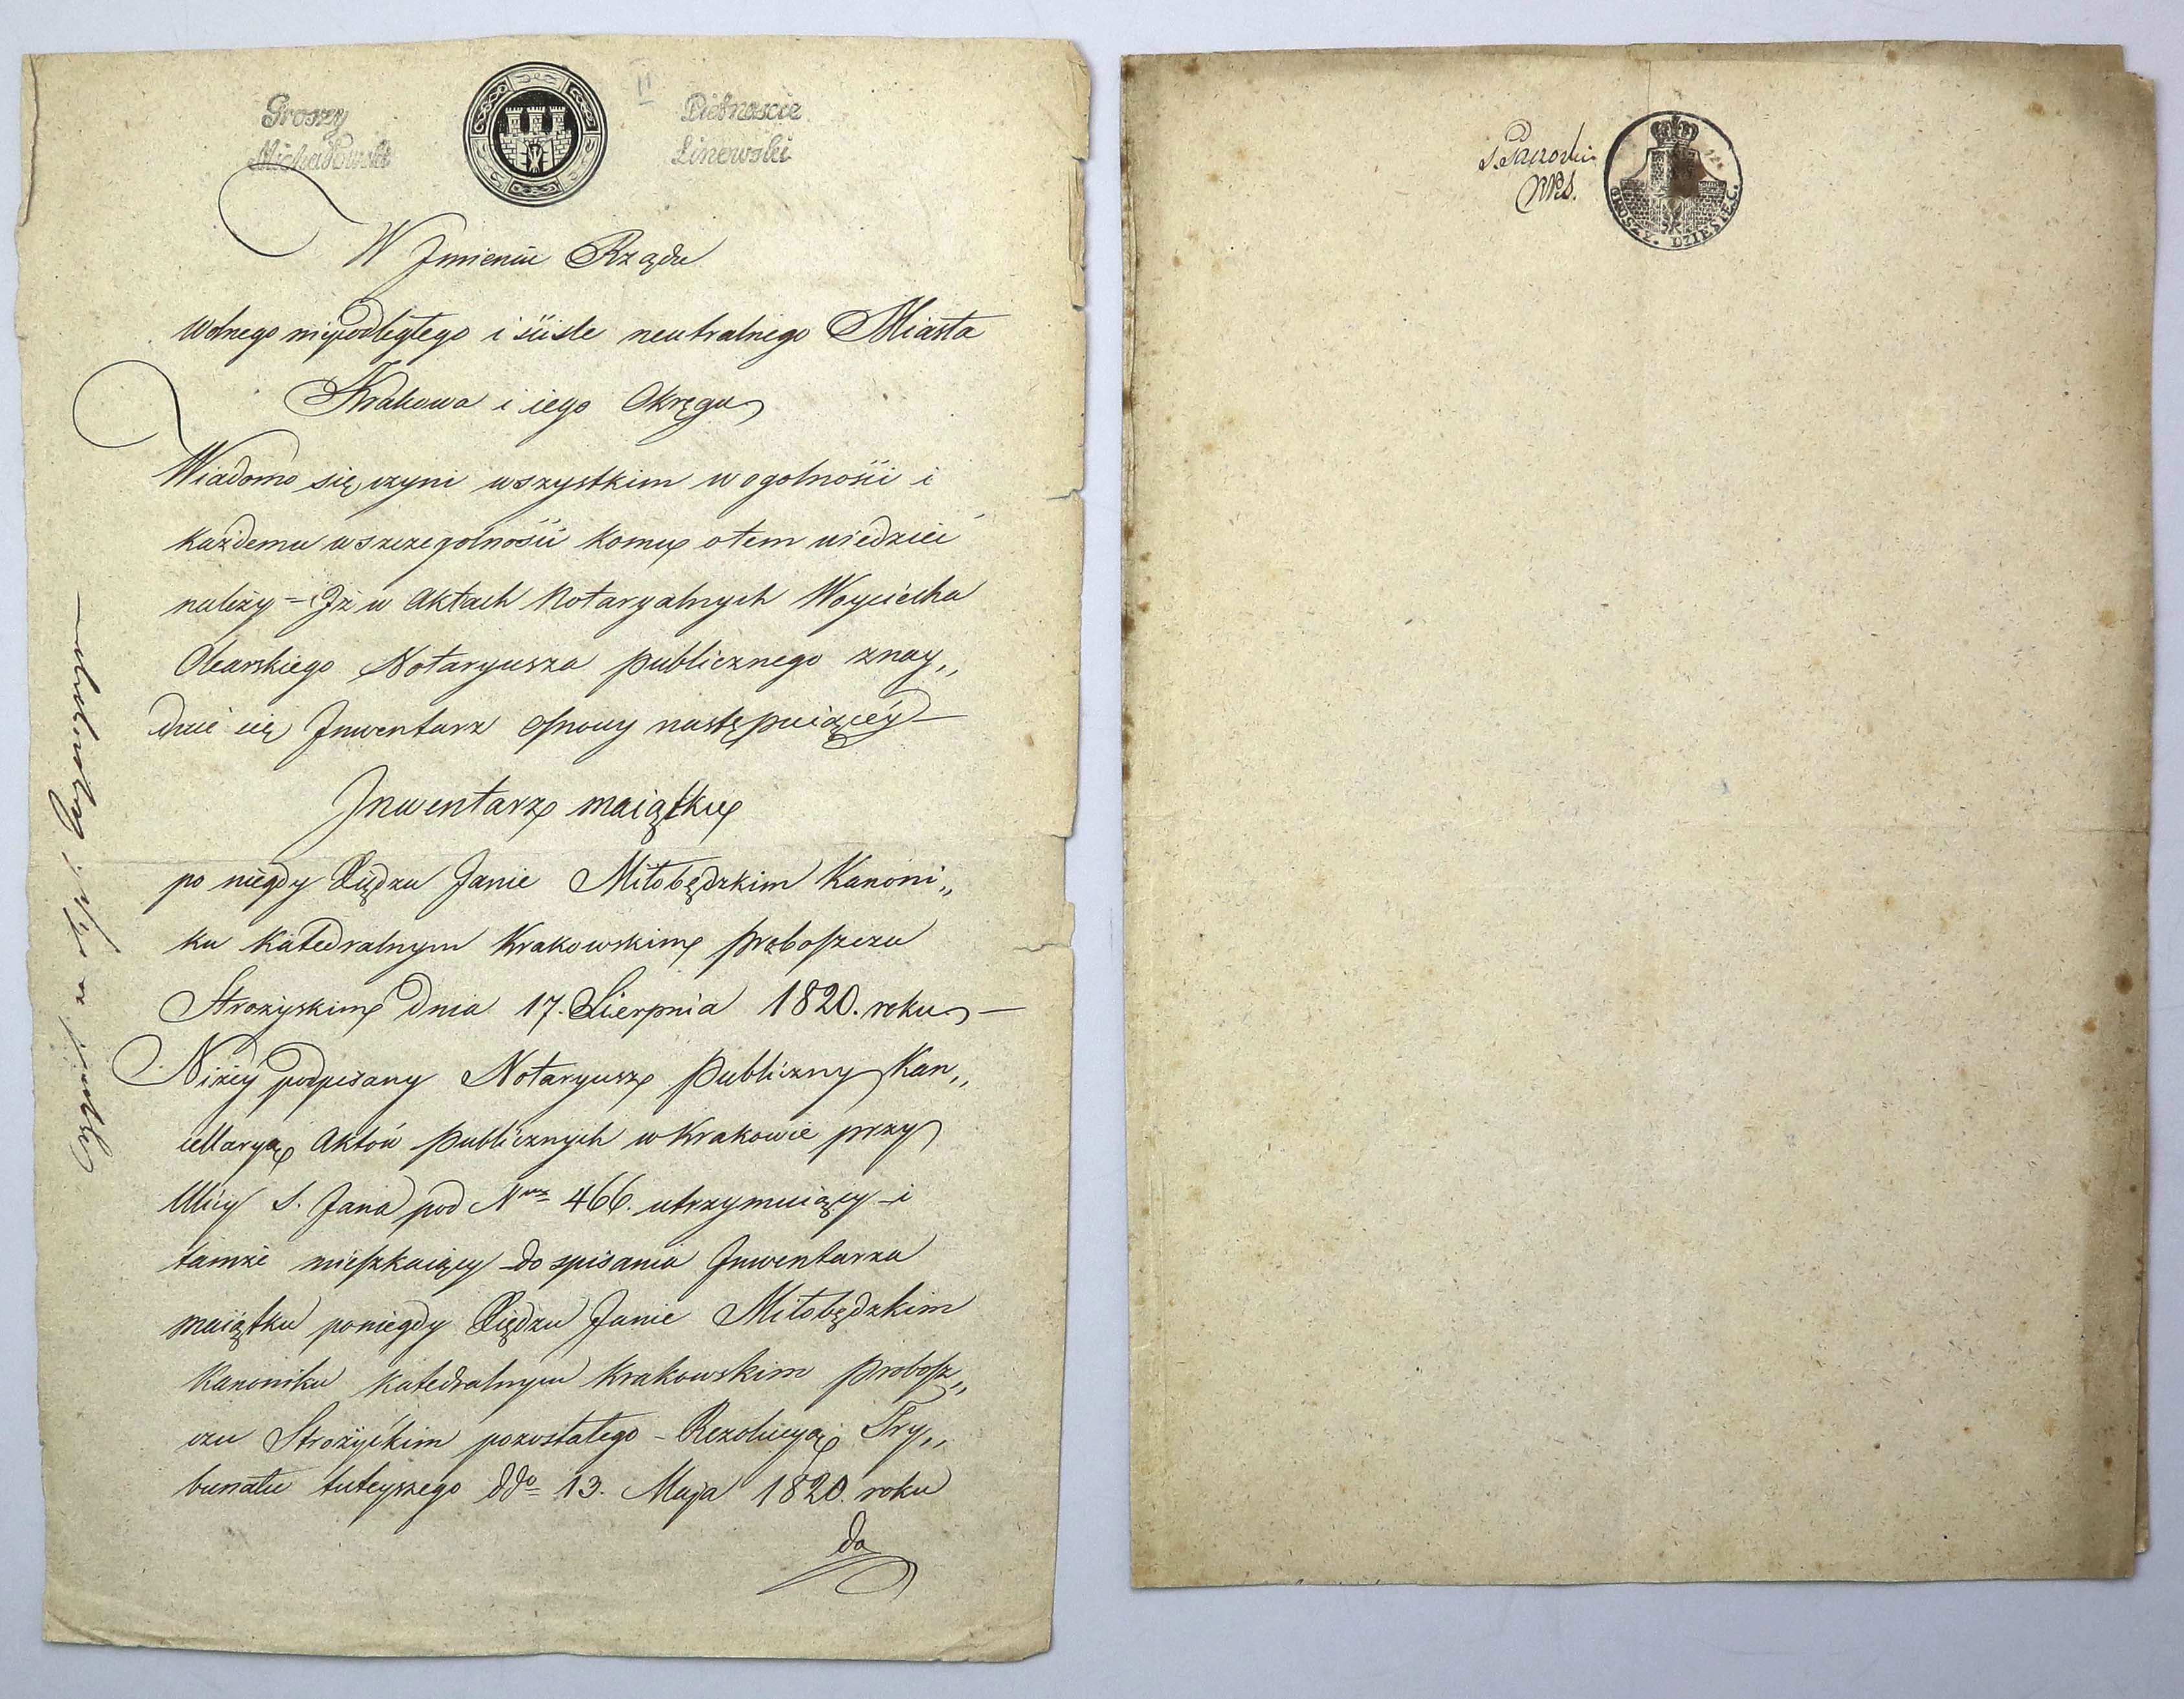 Groszy
Pietnascie
Michałowski
Linowski
W Jmieniu Rządu
Wolnego niepodległego i ściśle neutralnego Miasta
Krakowa i iego Okręgu
Wiadomo się czyni wszystkim w ogolności i
każdemu w szczegolności komu o tem wiedzieć
należy = Jż w Aktach Notaryalnych Woyciecha
Olearskiego Notaryusza publicznego znay„
duie się Jnwentarz Osnowy następuiącéy —
Jnwentarz maiątku
po niegdy Xiędzu Janie Miłobędzkim Kanoni„
ku Katedralnym Krakowskim proboszczu
Strożyskim dnia 17. Sierpnia 1820. roku —
Niżéy podpisany Notaryusz publiczny Kan„
cellaryą Aktów publicznych w Krakowie przy
Ulicy S. Jana pod Nrem 466. utrzymuiący i
tamże mieszkaiący do spisania Jnwentarza
maiątku po niegdy Xiędzu Janie Miłobędzkim
Kanoniku Katedralnym Krakowskim probosz„
czu Strożyskim pozostałego – Rezolucyą Try„
bunału tuteyszego ddo 13. Maja 1820. roku
do
GROSZY. DZIESIĘĆ.